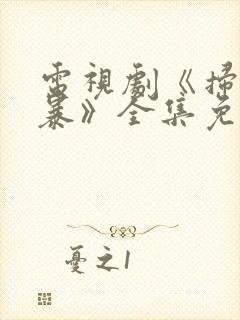 電視劇《掃
暴》全集免
憂之1